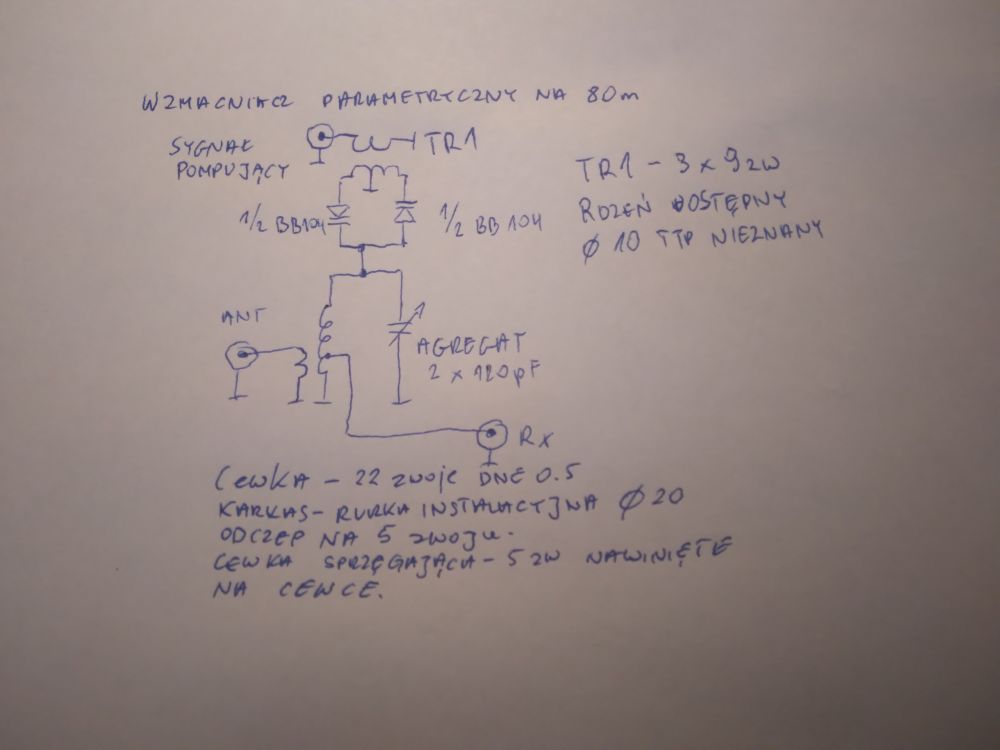 WZMACNIACZ PARAMETRYCZNY NA 80m
SYGNAŁ
POMPUJĄCY
TR1
1/2 BB104
1/2 BB104
TR1 - 3 x 9 zw
RDZEŃ DOSTĘPNY
ø 10 TYP NIEZNANY
ANT
AGREGAT
2 x 120pF
Rx
CEWKA - 22 zwoje DNE 0.5
KARKAS - RURKA INSTALACYJNA ø 20
ODCZEP NA 5 zwoju.
CEWKA SPRZĘGAJĄCA - 5 zw NAWINIĘTE
NA CEWCE.